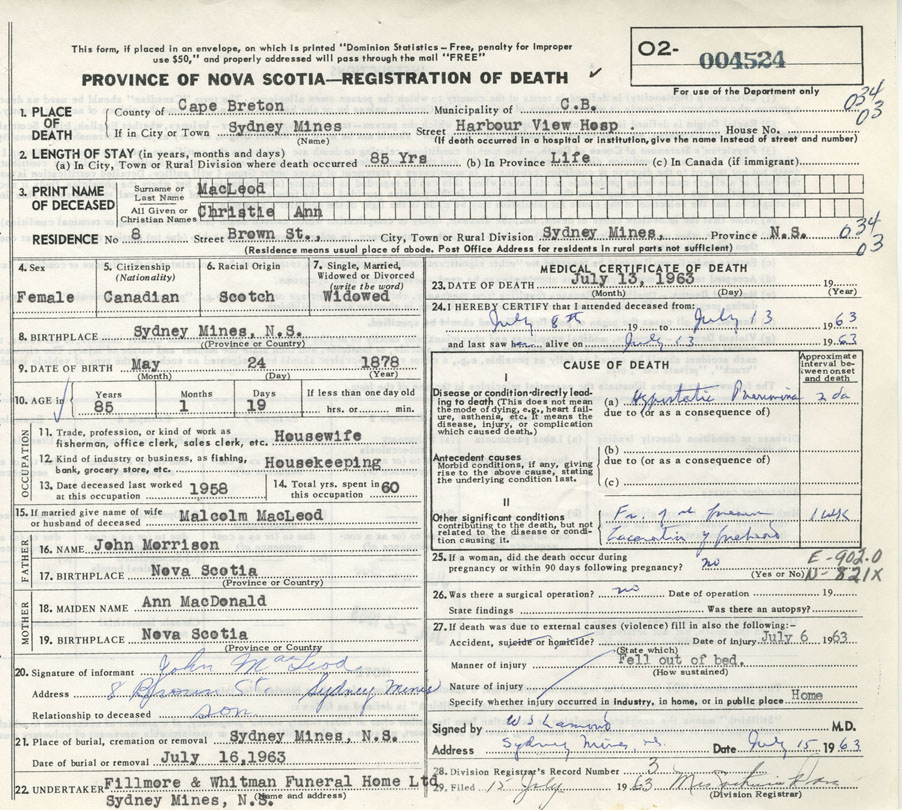 This form, if placed in an envelope, on which is printed "Dominion Statistics – Free, penalty for improper
use $50," and properly addressed will pass through the mail "FREE"
PROVINCE OF NOVA SCOTIA—REGISTRATION OF DEATH ✓
O2- 004524
For use of the Department only
034
03
1. PLACE OF DEATH
County of Cape Breton Municipality of C.B.
If in City or Town Sydney Mines Street Harbour View Hosp. House No.
(Name) (If death occurred in a hospital or institution, give the name instead of street and number)
2. LENGTH OF STAY (in years, months and days)
(a) In City, Town or Rural Division where death occurred 85 Yrs (b) In Province Life (c) In Canada (if immigrant)
3. PRINT NAME OF DECEASED
Surname or Last Name MacLeod
All Given or Christian Names Christie Ann
RESIDENCE No 8 Street Brown St., City, Town or Rural Division Sydney Mines, Province N.S.
(Residence means usual place of abode. Post Office Address for residents in rural parts not sufficient)
034
03
4. Sex
Female
5. Citizenship
(Nationality)
Canadian
6. Racial Origin
Scotch
7. Single, Married,
Widowed or Divorced
(write the word)
Widowed
8. BIRTHPLACE Sydney Mines, N.S.
(Province or Country)
9. DATE OF BIRTH May 24 1878
(Month) (Day) (Year)
10. AGE in
Years Months Days If less than one day old
85 1 19 hrs. or min.
OCCUPATION
11. Trade, profession, or kind of work as
fisherman, office clerk, sales clerk, etc. Housewife
12. Kind of industry or business, as fishing,
bank, grocery store, etc. Housekeeping
13. Date deceased last worked
at this occupation 1958
14. Total yrs. spent in
this occupation 60
15. If married give name of wife
or husband of deceased Malcolm MacLeod
FATHER
16. NAME John Morrison
17. BIRTHPLACE Nova Scotia
(Province or Country)
MOTHER
18. MAIDEN NAME Ann MacDonald
19. BIRTHPLACE Nova Scotia
(Province or Country
20. Signature of informant John MacLeod
Address 8 Brown St. Sydney Mines
Relationship to deceased son
21. Place of burial, cremation or removal Sydney Mines, N.S.
Date of burial or removal July 16,1963
22. UNDERTAKER Fillmore & Whitman Funeral Home Ltd
Sydney Mines, N.S.
(Name and address)
MEDICAL CERTIFICATE OF DEATH
23. DATE OF DEATH July 13, 1963 19
(Month) (Day) (Year)
24. I HEREBY CERTIFY that I attended deceased from:
July 8th 19 to July 13 1963
and last saw h alive on July 13 1963
CAUSE OF DEATH
Approximate interval between onset and death
I
Disease or condition directly leading to death (This does not mean
the mode of dying, e.g., heart failure, asthenia, etc. It means the
disease, injury, or complication
which caused death.)
(a) Hypostatic Pneumonia 2 da
due to (or as a consequence of)
Antecedent causes
Morbid conditions, if any, giving
rise to the above cause, stating
the underlying condition last.
(b)
due to (or as a consequence of)
(c)
II
Other significant conditions
contributing to the death, but not
related to the disease or condition causing it.
Laceration of forehead
1 wk
25. If a woman, did the death occur during
pregnancy or within 90 days following pregnancy? no
(Yes or No)
E-902.0
N-821X
26. Was there a surgical operation? no Date of operation 19
State findings Was there an autopsy?
27. If death was due to external causes (violence) fill in also the following:–
Accident, suicide or homicide? Date of injury July 6 1963
(State which)
Manner of injury Fell out of bed.
(How sustained)
Nature of injury
Specify whether injury occurred in industry, in home, or in public place Home
Signed by W S M.D.
Address Sydney Mines N.S. Date July 15 1963
28. Division Registrar's Record Number 3
29. Filed 15 July 1963
(Division Registrar)